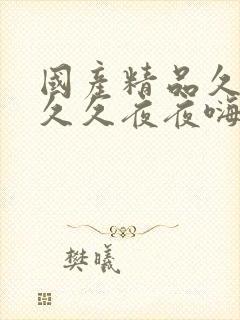 國產精品久
久久夜夜嗨
樊曦